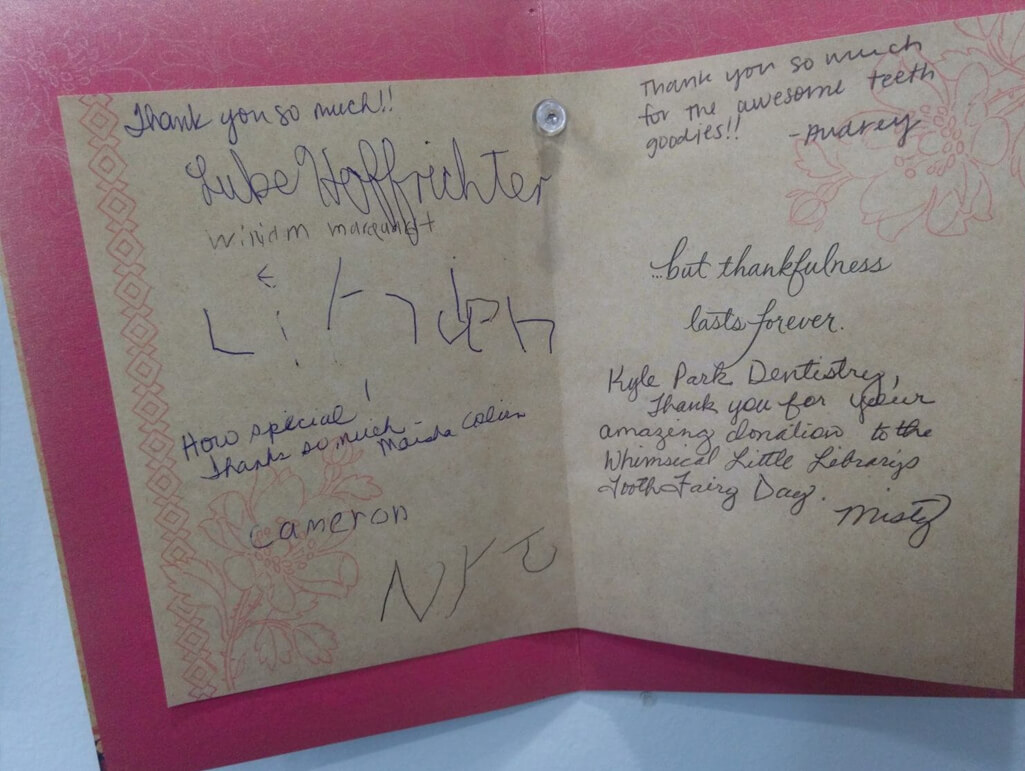 Thank you so much!!
Luke Hoffrichter
How special!
Thanks so much
Cameron
Thank you so much
for the awesome teeth
goodies!!
-Audrey
...but thankfulness
lasts forever.
Kyle Park Dentistry,
Thank you for your
amazing donation to the
Whimsical Little Library's
Tooth Fairy Day.
Misty